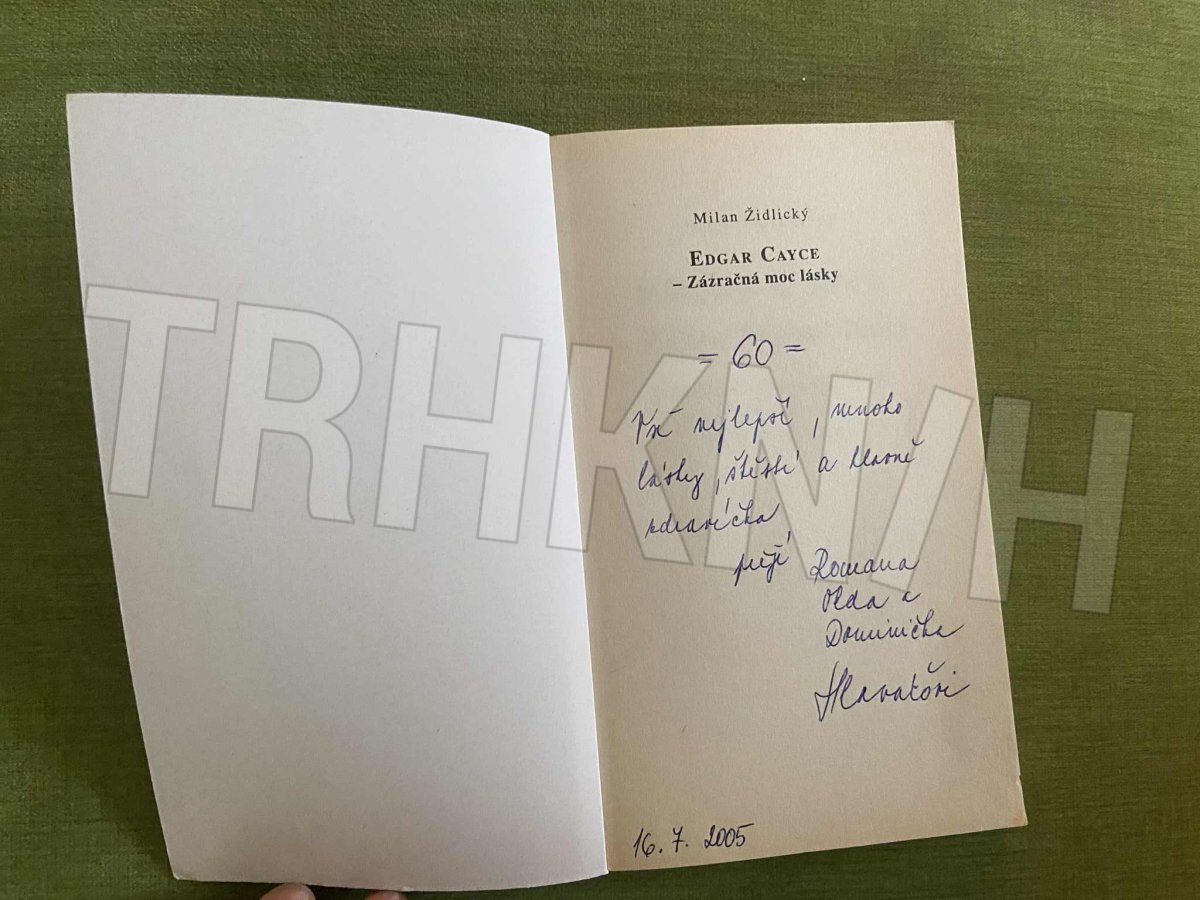 Milan Židlický
EDGAR CAYCE
– Zázračná moc lásky
= 60 =
Vše nejlepší, mnoho
lásky, štěstí a hlavně
zdravíčka
přejí Romana
Olda a
Dominička
Hlavatůvi
16. 7. 2005
TRHKNIH